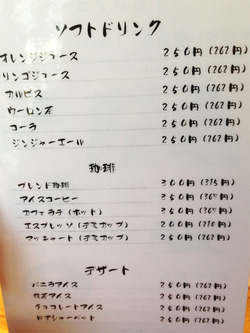 ソフトドリンク
オレンジジュース 250円(262円)
リンゴジュース 250円(262円)
カルピス 250円(262円)
ウーロン茶 250円(262円)
コーラ 250円(262円)
ジンジャーエール 250円(262円)
珈琲
ブレンド珈琲 300円(315円)
アイスコーヒー 350円(367円)
カフェラテ(ホット) 350円(367円)
エスプレッソ(デミカップ) 200円(210円)
マッキャート(デミカップ) 250円(262円)
デザート
バニラアイス 250円(262円)
抹茶アイス 250円(262円)
チョコレートアイス 250円(262円)
ユズシャーベット 250円(262円)